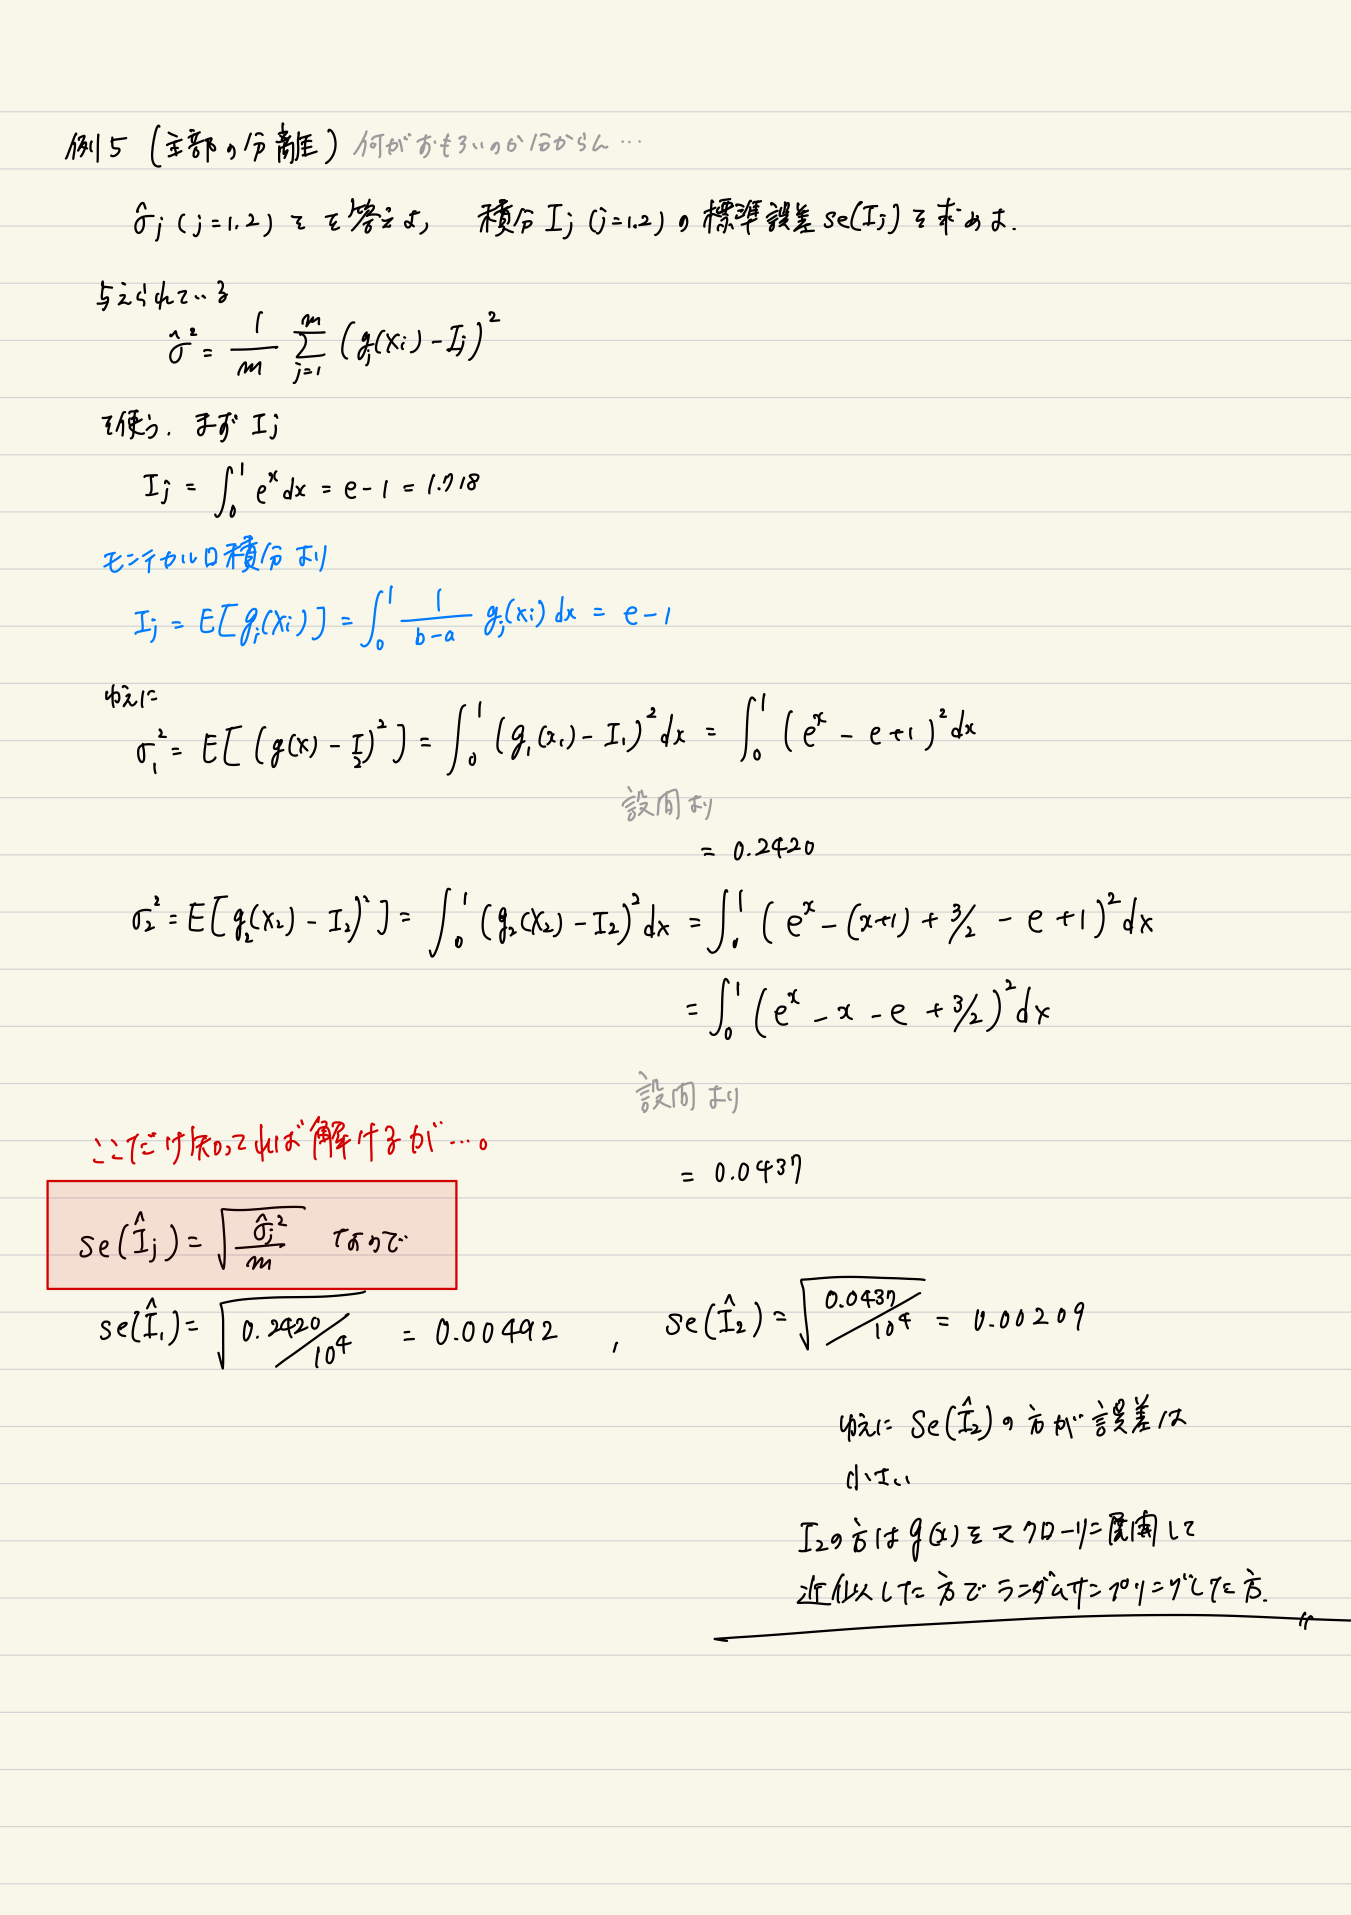 例5 (主部の分離) 何がおもろいのか分からん…
σ̂j (j=1,2) を を答えよ, 積分 Ij (j=1,2) の標準誤差 se(Ij) を求めよ.
与えられている
σ̂² = 1/m Σ_{j=1}^{m} (gj(Xi) - Ij)²
を使う. まず Ij
Ij = ∫₀¹ e^x dx = e-1 = 1.718
モンテカルロ積分より
Ij = E[gj(Xi)] = ∫₀¹ 1/(b-a) gj(xi) dx = e-1
ゆえに
σ₁² = E[(g(x) - I₂)²] = ∫₀¹ (g₁(x₁) - I₁)² dx = ∫₀¹ (e^x - e+1)² dx
設問より
= 0.2420
σ₂² = E[g₂(X₂) - I₂)²] = ∫₀¹ (g₂(X₂) - I₂)² dx = ∫₀¹ (e^x - (x+1) + 3/2 - e +1)² dx
= ∫₀¹ (e^x - x - e + 3/2)² dx
設問より
ここだけ知ってれば解けるが…。
= 0.0437
se(Îj) = √(σ̂j²/m) なので
se(Î₁) = √(0.2420/10⁴) = 0.00492 , se(Î₂) = √(0.0437/10⁴) = 0.00209
ゆえに se(Î₂) の方が誤差は
小さい
I₂の方は g(x) をマクローリン展開して
近似した方でランダムサンプリングした方. 〃